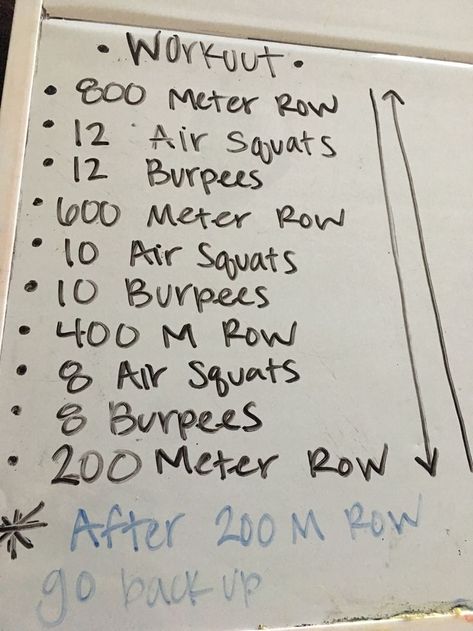 • Workout •
• 800 Meter Row
• 12 Air Squats
• 12 Burpees
• 600 Meter Row
• 10 Air Squats
• 10 Burpees
• 400 M Row
• 8 Air Squats
• 8 Burpees
• 200 Meter Row
* After 200 M Row
go back up